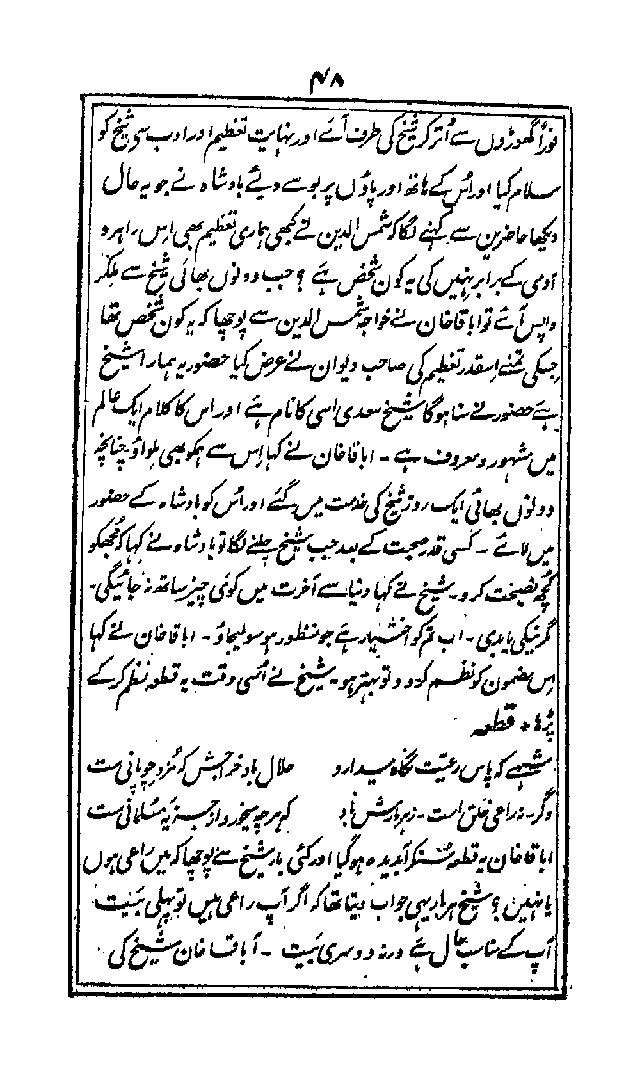 ۴۸
فوراً گھوڑوں سے اُتر کر شیخ کی طرف آئے اور نہایت تعظیم اور ادب سی شیخ کو
سلام کیا اور اُس کے ہاتھ اور پاؤں پر بوسے دیئے بادشاہ نے جو یہ حال
دیکھا حاضرین سے کہنے لگا کہ شمس الدین نے کبھی ہماری تعظیم بھی اِس راہرو
آدمی کے برابر نہیں کی یہ کون شخص ہے ؟ جب دونوں بھائی شیخ سے ملکر
واپس آئے تو اباقاخان نے خواجہ شمس الدین سے پوچھا کہ یہ کون شخص تھا
جسکی تمنے اسقدر تعظیم کی صاحب دیوان نے عرض کیا حضور یہ ہمارا شیخ
ہے حضور نے سنا ہوگا شیخ سعدی اسی کا نام ہے اور اس کا کلام ایک عالم
میں مشہور و معروف ہے ۔ اباقاخان نے کہا اِس سے ہمکو بھی ملواؤ چنانچہ
دونوں بھائی ایک روز شیخ کی خدمت میں گئے اور اُس کو بادشاہ کے حضور
میں لائے ۔ کسی قدر صحبت کے بعد جب شیخ چلنے لگا تو بادشاہ نے کہا کہ مجھکو
کچھ نصیحت کرو ۔ شیخ نے کہا دنیا سے آخرت میں کوئی چیز ساتھ نہ جائیگی ۔
گر نیکی یا بدی ۔ اب تم کو اختیار ہے جو منظور ہو سو لیجاؤ ۔ اباقاخان نے کہا
اِس مضمون کو نظم کر دو تو بہتر ہو ۔ شیخ نے اُسی وقت یہ قطعہ نظم کر کے
پڑھا + قطعہ
شہے کہ پاس رعیّت نگاہ میدارد حلال باد خراجش کہ مُزد چوپانی ست
وگر نہ راعی خلق است ۔ زہر مارش باد کہ ہر چہ میخورد از جزیہ مسلمانی ست
اباقاخان یہ قطعہ سنکر آبدیدہ ہو گیا اور کئی بار شیخ سے پوچھا کہ میں راعی ہوں
یا نہیں ؟ شیخ ہر بار یہی جواب دیتا تھا کہ اگر آپ راعی ہیں تو پہلی بیت
آپ کے مناسب حال ہے ورنہ دوسری بیت ۔ اباقاخان شیخ کی